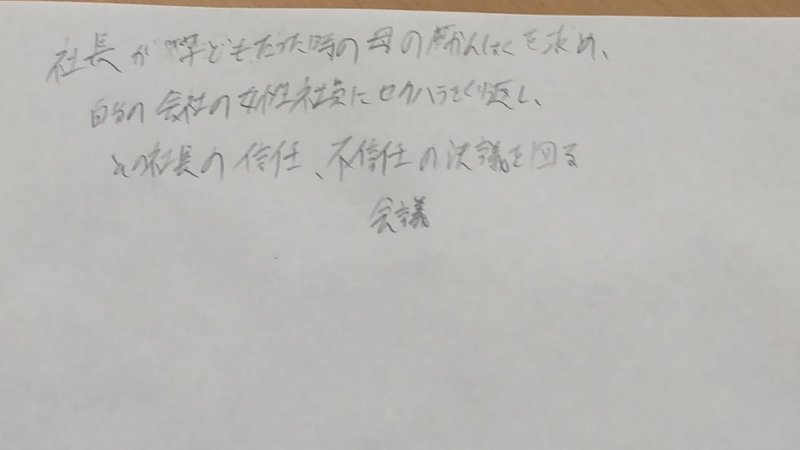 社長が 子どもだった時の母の かんしょくを求め、
自分の会社の女性社員にセクハラをくり返し、
その社長の信任、不信任の決議を図る
会議